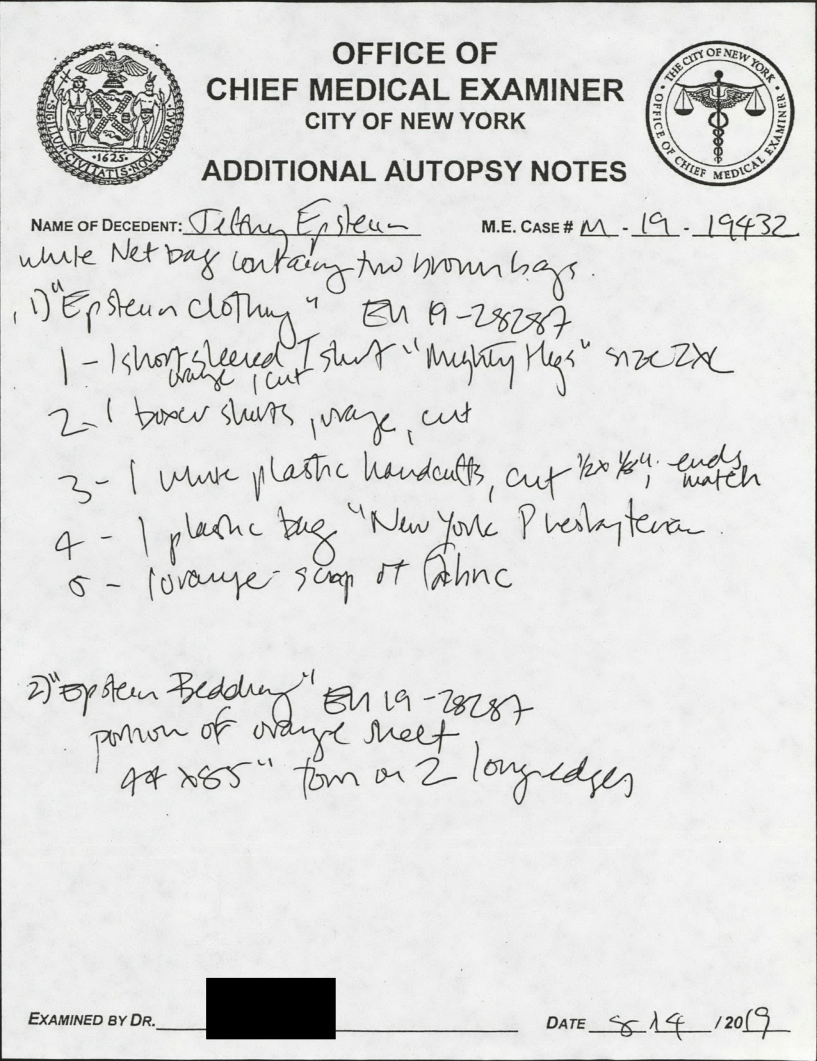 OFFICE OF
CHIEF MEDICAL EXAMINER
CITY OF NEW YORK
ADDITIONAL AUTOPSY NOTES
SIGILLUM CIVITATIS NOVI EBORACI
1625
THE CITY OF NEW YORK
OFFICE OF CHIEF MEDICAL EXAMINER
NAME OF DECEDENT: Jeffrey Epstein M.E. CASE # M - 19 - 19432
white Net bag containing two brown bags.
1) "Epstein Clothing" EU 19-28287
1 - 1 short sleeved T shirt "Mighty " size 2XL
orange, cut
2 - 1 boxer shorts, orange, cut
3 - 1 white plastic handcuffs, cut 1/2 x 1/8", ends
match
4 - 1 plastic bag "New York Presbyterian
5 - 1 orange scrap of fabric
2) "Epstein Bedding" EU 19-28287
portion of orange sheet
44 x 85" torn on 2 long edges
EXAMINED BY DR. DATE 8 14 /2019